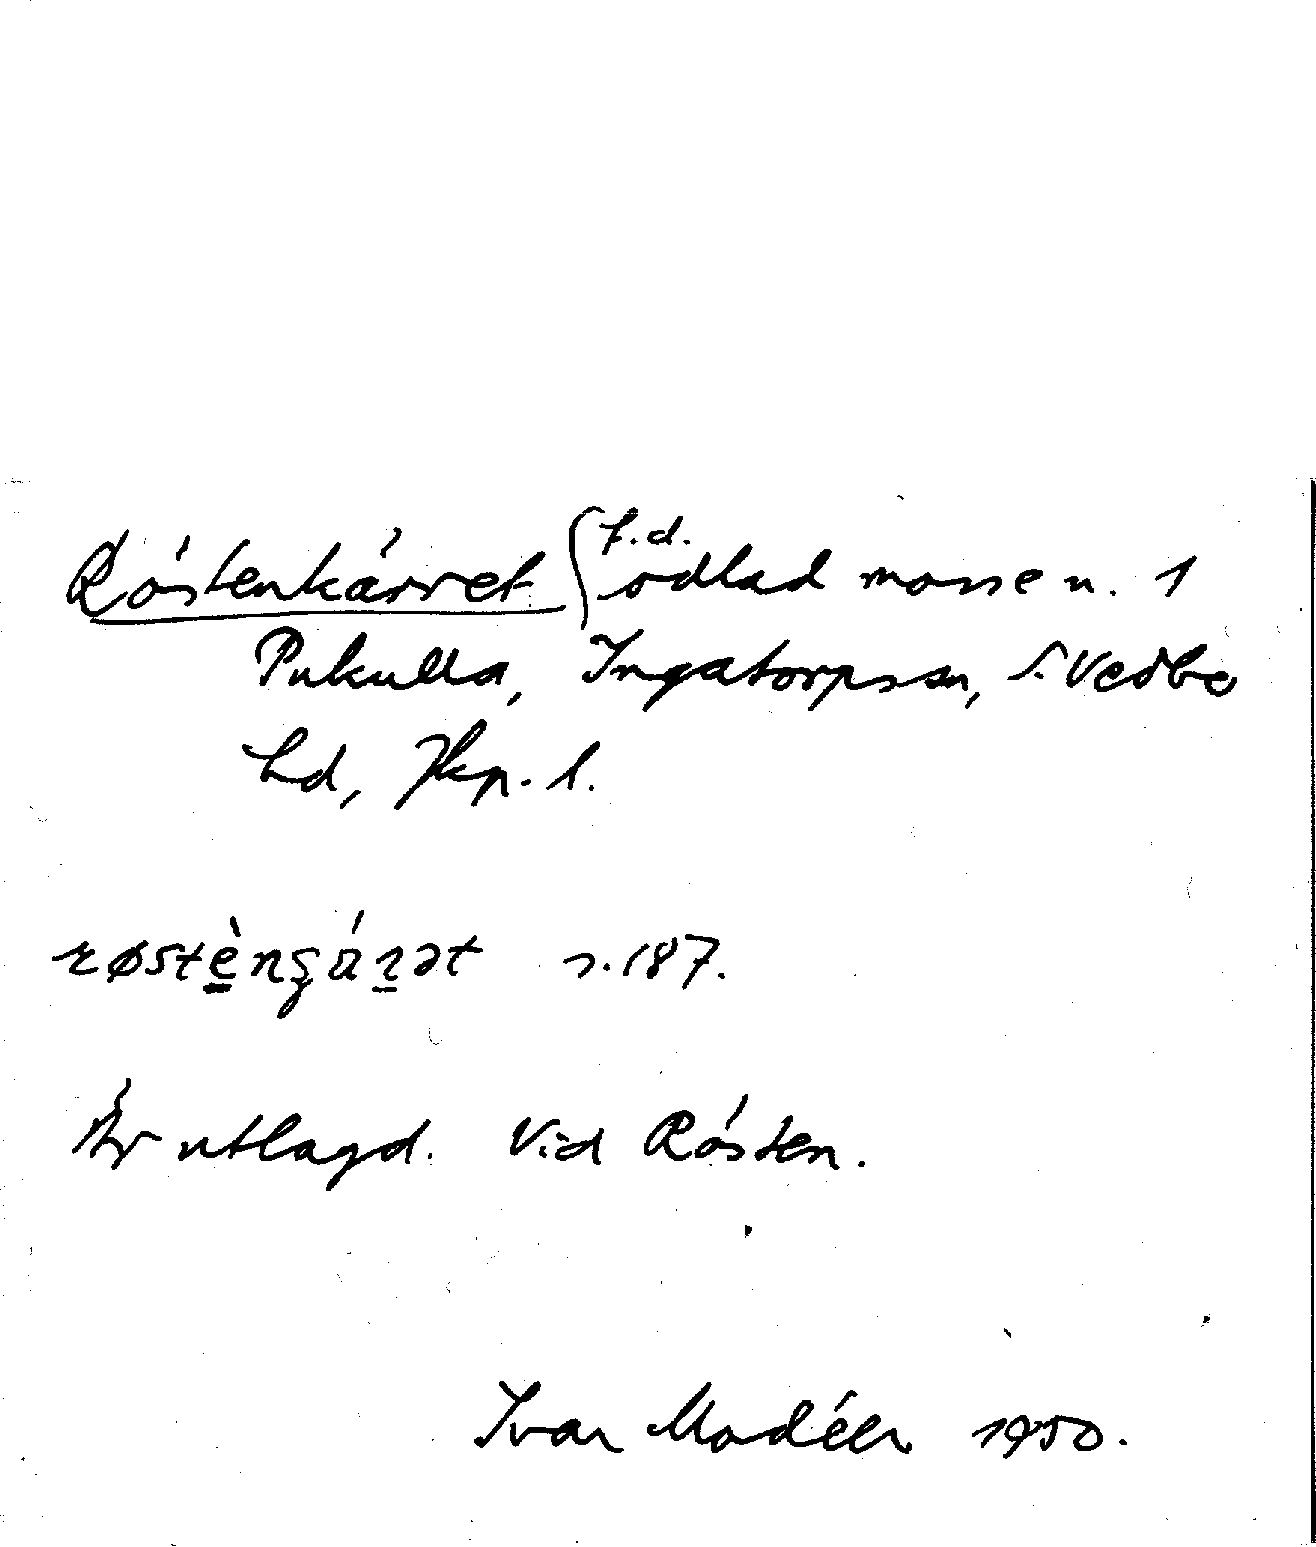 Röstenkärret f.d. odlad mosse u. 1
Pukulla, Ingatorps sn, S. Vedbo
hd, Jkp. l.
røstènʂárət s. 187.
Är utlagd. Vid Rösten.
Ivar Modéer 1950.